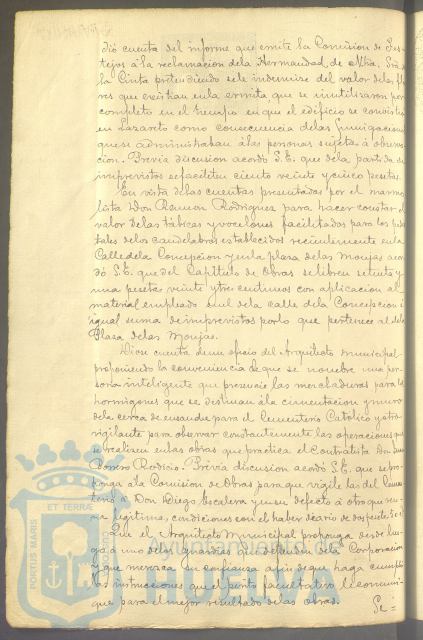 dió cuenta del informe que emite la Comision de Fes-
tejos á la reclamación de la Hermandad de Ntra. Sra. de
la Cinta pretendiendo se le indemnice del valor de las flo
res que existian en la ermita, que se inutilizaron por
completo en el tiempo en que el edificio se convirtió
en Lazareto como consecuencia de las fumigaciones
que se administraban á las personas sujetas á observa
cion. Prévia discusion acordó S.E. que de la partida de
imprevistos se faciliten ciento veinte y cinco pesetas.
En vista de las cuentas presentadas por el marmo-
lista Don Ramon Rodriguez para hacer constar el
valor de las tábicas y facilitados para los pedes
tales de los candelabros establecidos recientemente en la
Calle de la Concepcion y en la plaza de las Monjas acor
dó S.E. que del Capítulo de Obras se libren setenta y
una peseta veinte y tres centimos con aplicacion al
material empleado en el de la calle de la Concepcion é
igual suma de imprevistos por lo que pertenece al de la
Plaza de las Monjas.
Diose cuenta de un oficio del Arquitecto Municipal
proponiendo la conveniencia de que se nombre una per-
sona inteligente que presencie las mezcladuras para los
hormigones que se destinan á la cimentacion y muro
de la cerca de ensanche para el Cementerio Católico y otro
vigilante para observar constantemente las operaciones que
se realicen en las obras que practica el Contratista Don
Borrero Rodicio. Prévia discusion acordó S.E. que se pro-
ponga á la Comision de Obras para que vigile las del Cemen
terio á Don Diego Escalera y en su defecto á otro que reu-
na legítimas condiciones con el haber diario de dos pesetas
Que el Arquitecto Municipal proponga desde lue-
go á uno de los guardias que dependen de la Corporacion
y que merezca su confianza a fin de que haga cumplir
las instrucciones que el punto facultativo le comuni-
que para el mejor resultado de las obras.
Se=
PORTUS MARIS
ET TERRÆ
CUSTODIA
Ayuntamiento de
HUELVA